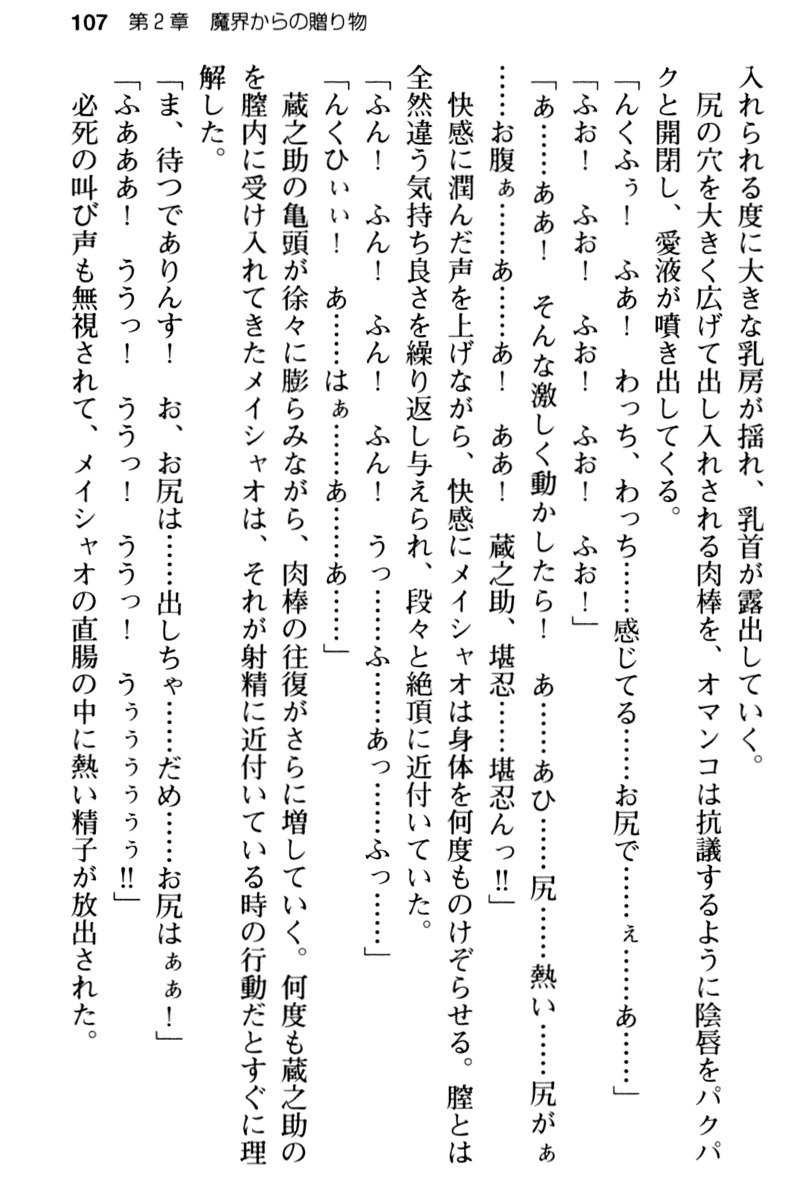 107 第2章 魔界からの贈り物
入れられる度に大きな乳房が揺れ、乳首が露出していく。
尻の穴を大きく広げて出し入れされる肉棒を、オマンコは抗議するように陰唇をパクパ
クと開閉し、愛液が噴き出してくる。
「んくふぅ！　ふあ！　わっち、わっち……感じてる……お尻で……ぇ……あ……」
「ふお！　ふお！　ふお！　ふお！　ふお！」
「あ……ああ！　そんな激しく動かしたら！　あ……あひ……尻……熱い……尻がぁ
……お腹ぁ……あ……あ！　ああ！　蔵之助、堪忍……堪忍んっ!!」
快感に潤んだ声を上げながら、快感にメイシャオは身体を何度ものけぞらせる。膣とは
全然違う気持ち良さを繰り返し与えられ、段々と絶頂に近付いていた。
「ふん！　ふん！　ふん！　ふん！　うっ……ふ……あっ……ふっ……」
「んくひぃぃ！　あ……はぁ……あ……あ……」
蔵之助の亀頭が徐々に膨らみながら、肉棒の往復がさらに増していく。何度も蔵之助の
を膣内に受け入れてきたメイシャオは、それが射精に近付いている時の行動だとすぐに理
解した。
「ま、待つでありんす！　お、お尻は……出しちゃ……だめ……お尻はぁぁ！」
「ふあああ！　ううっ！　ううっ！　ううっ！　うぅぅぅぅぅ!!」
必死の叫び声も無視されて、メイシャオの直腸の中に熱い精子が放出された。